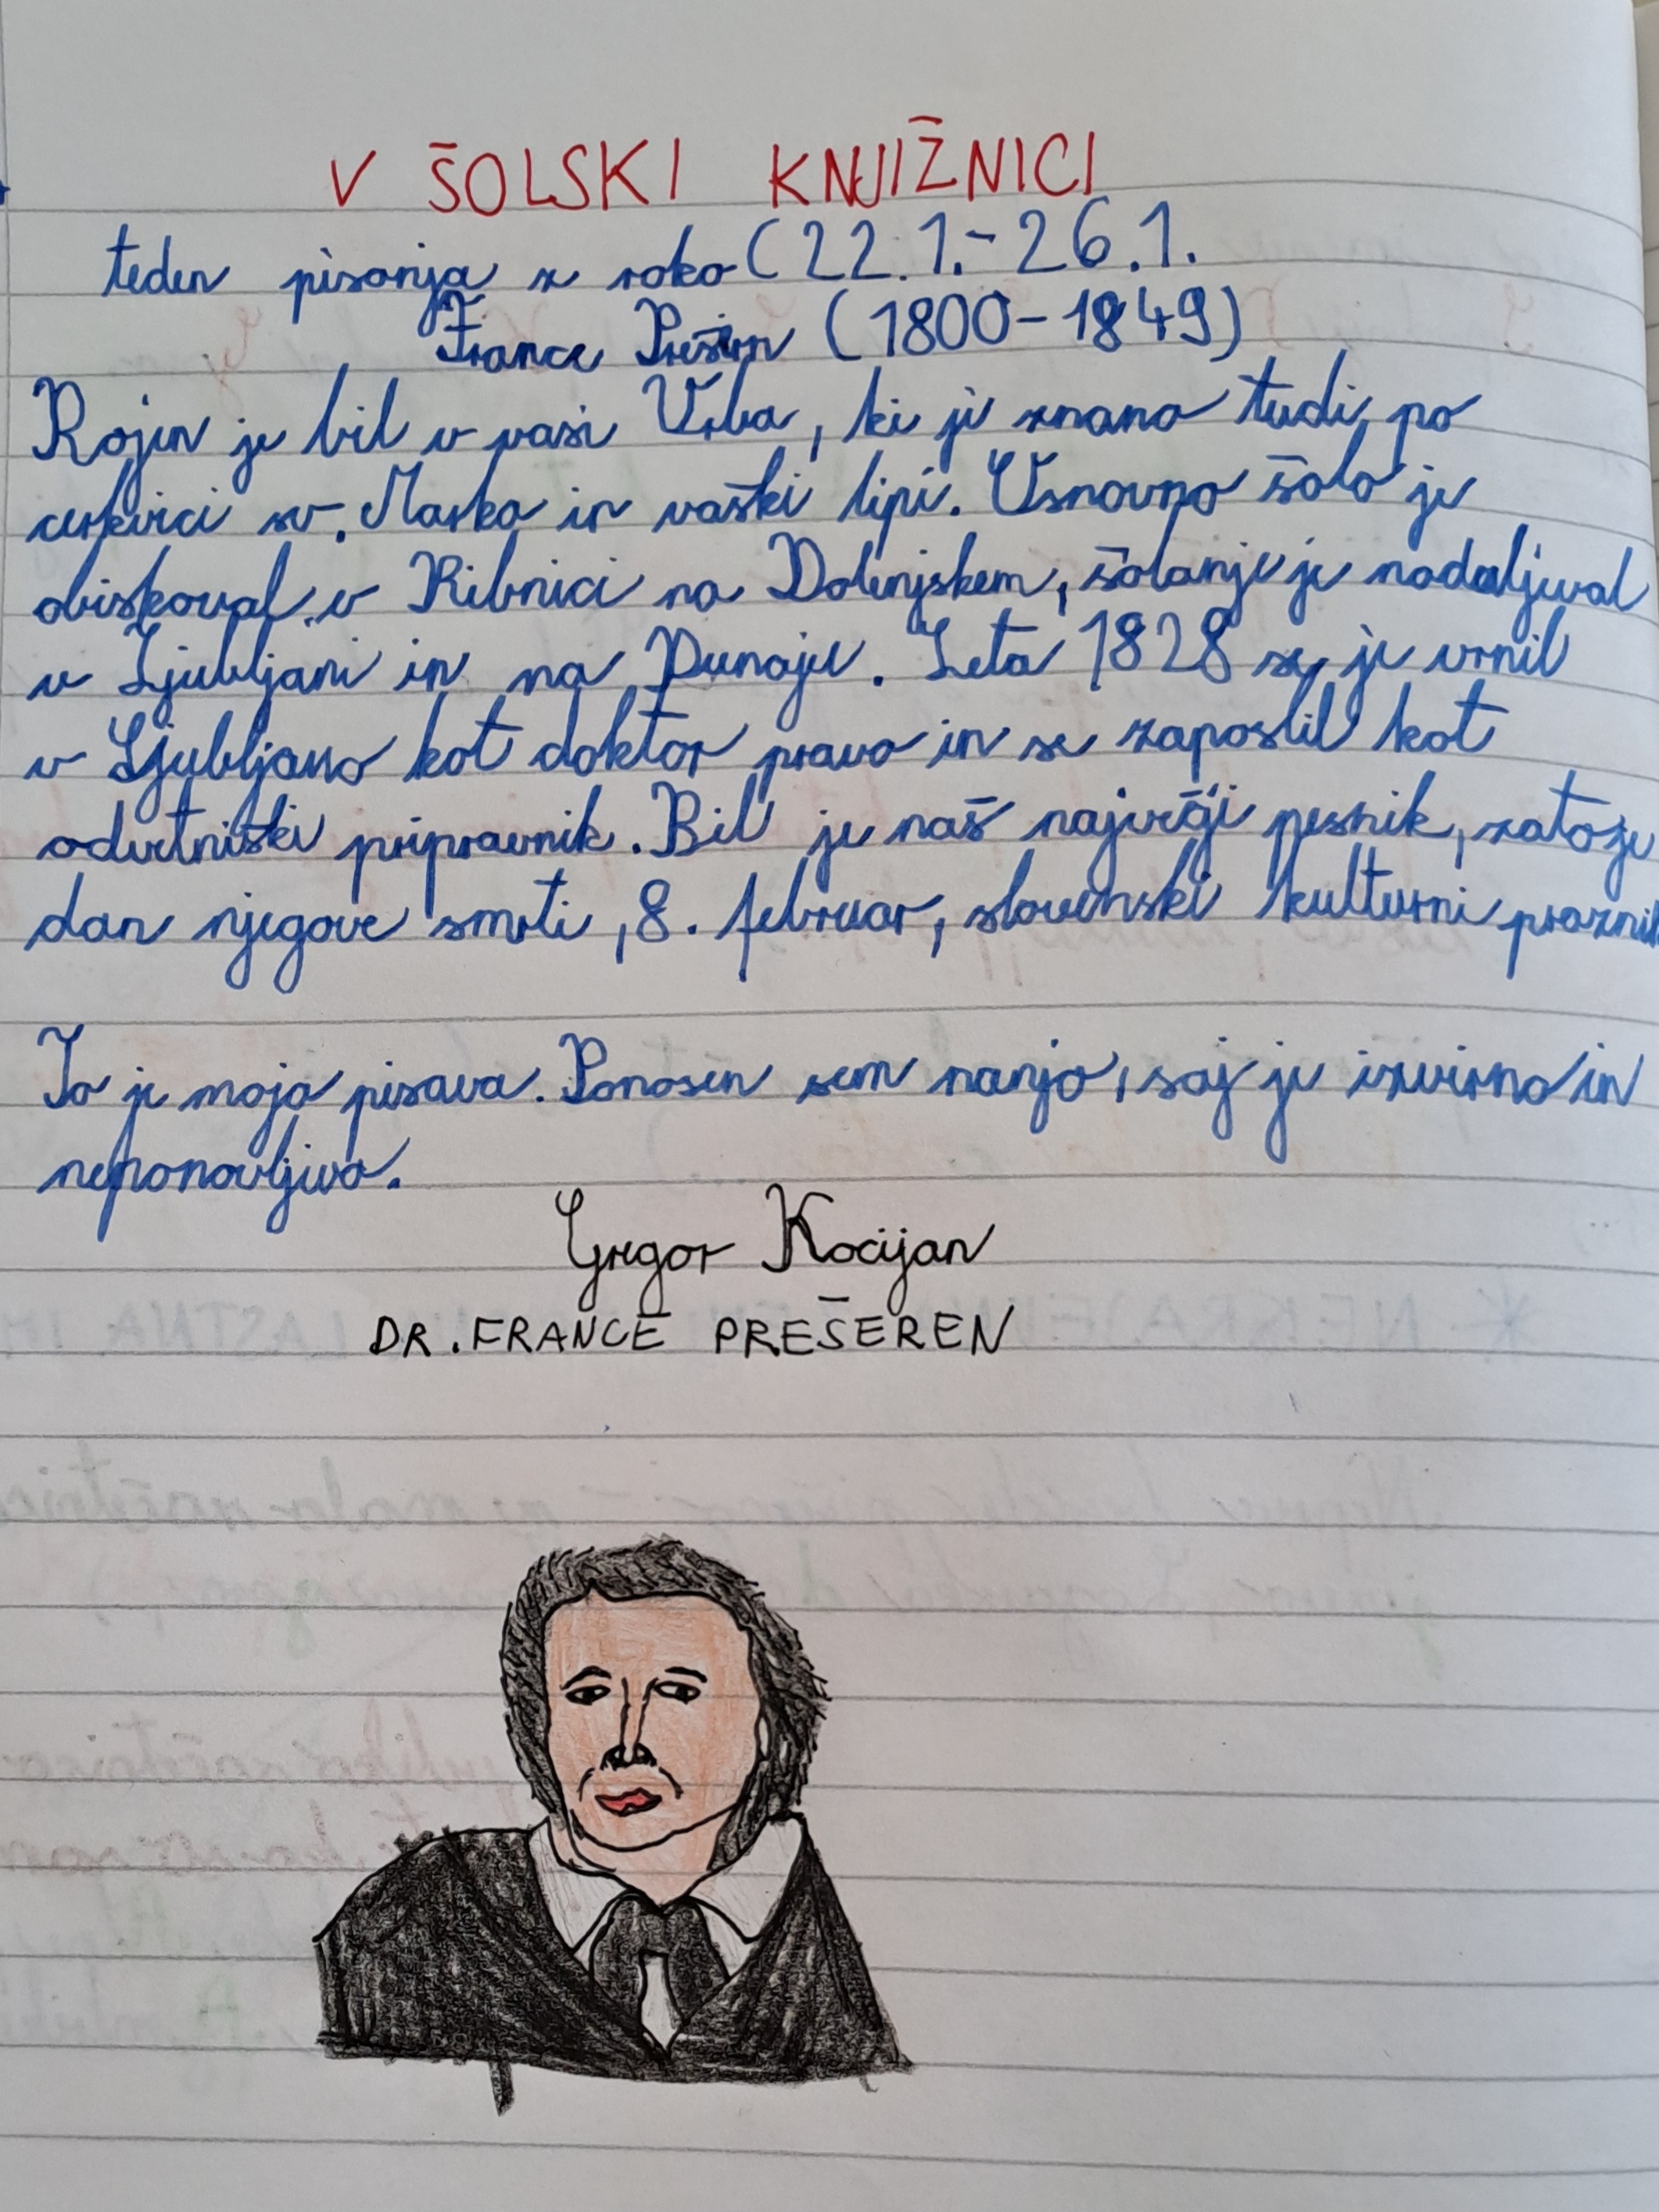 V ŠOLSKI KNJIŽNICI
teden pisanja z roko (22.1.-26.1.
France Prešern (1800-1849)
Rojen je bil v vasi Vrba, ki je znana tudi po
cerkvici sv. Marka in vaški lipi. Osnovno šolo je
obiskoval v Ribnici na Dolenjskem, šolanje je nadaljeval
v Ljubljani in na Dunaju. Leta 1828 se je vrnil
v Ljubljano kot doktor prava in se zaposlil kot
odvetniški pripravnik. Bil je naš največji pesnik, zato je
dan njegove smrti, 8. februar, slovenski kulturni praznik
To je moja pisava. Ponosen sem nanjo, saj je izvirna in
neponovljiva.
Gregor Kocijan
DR. FRANCE PREŠEREN